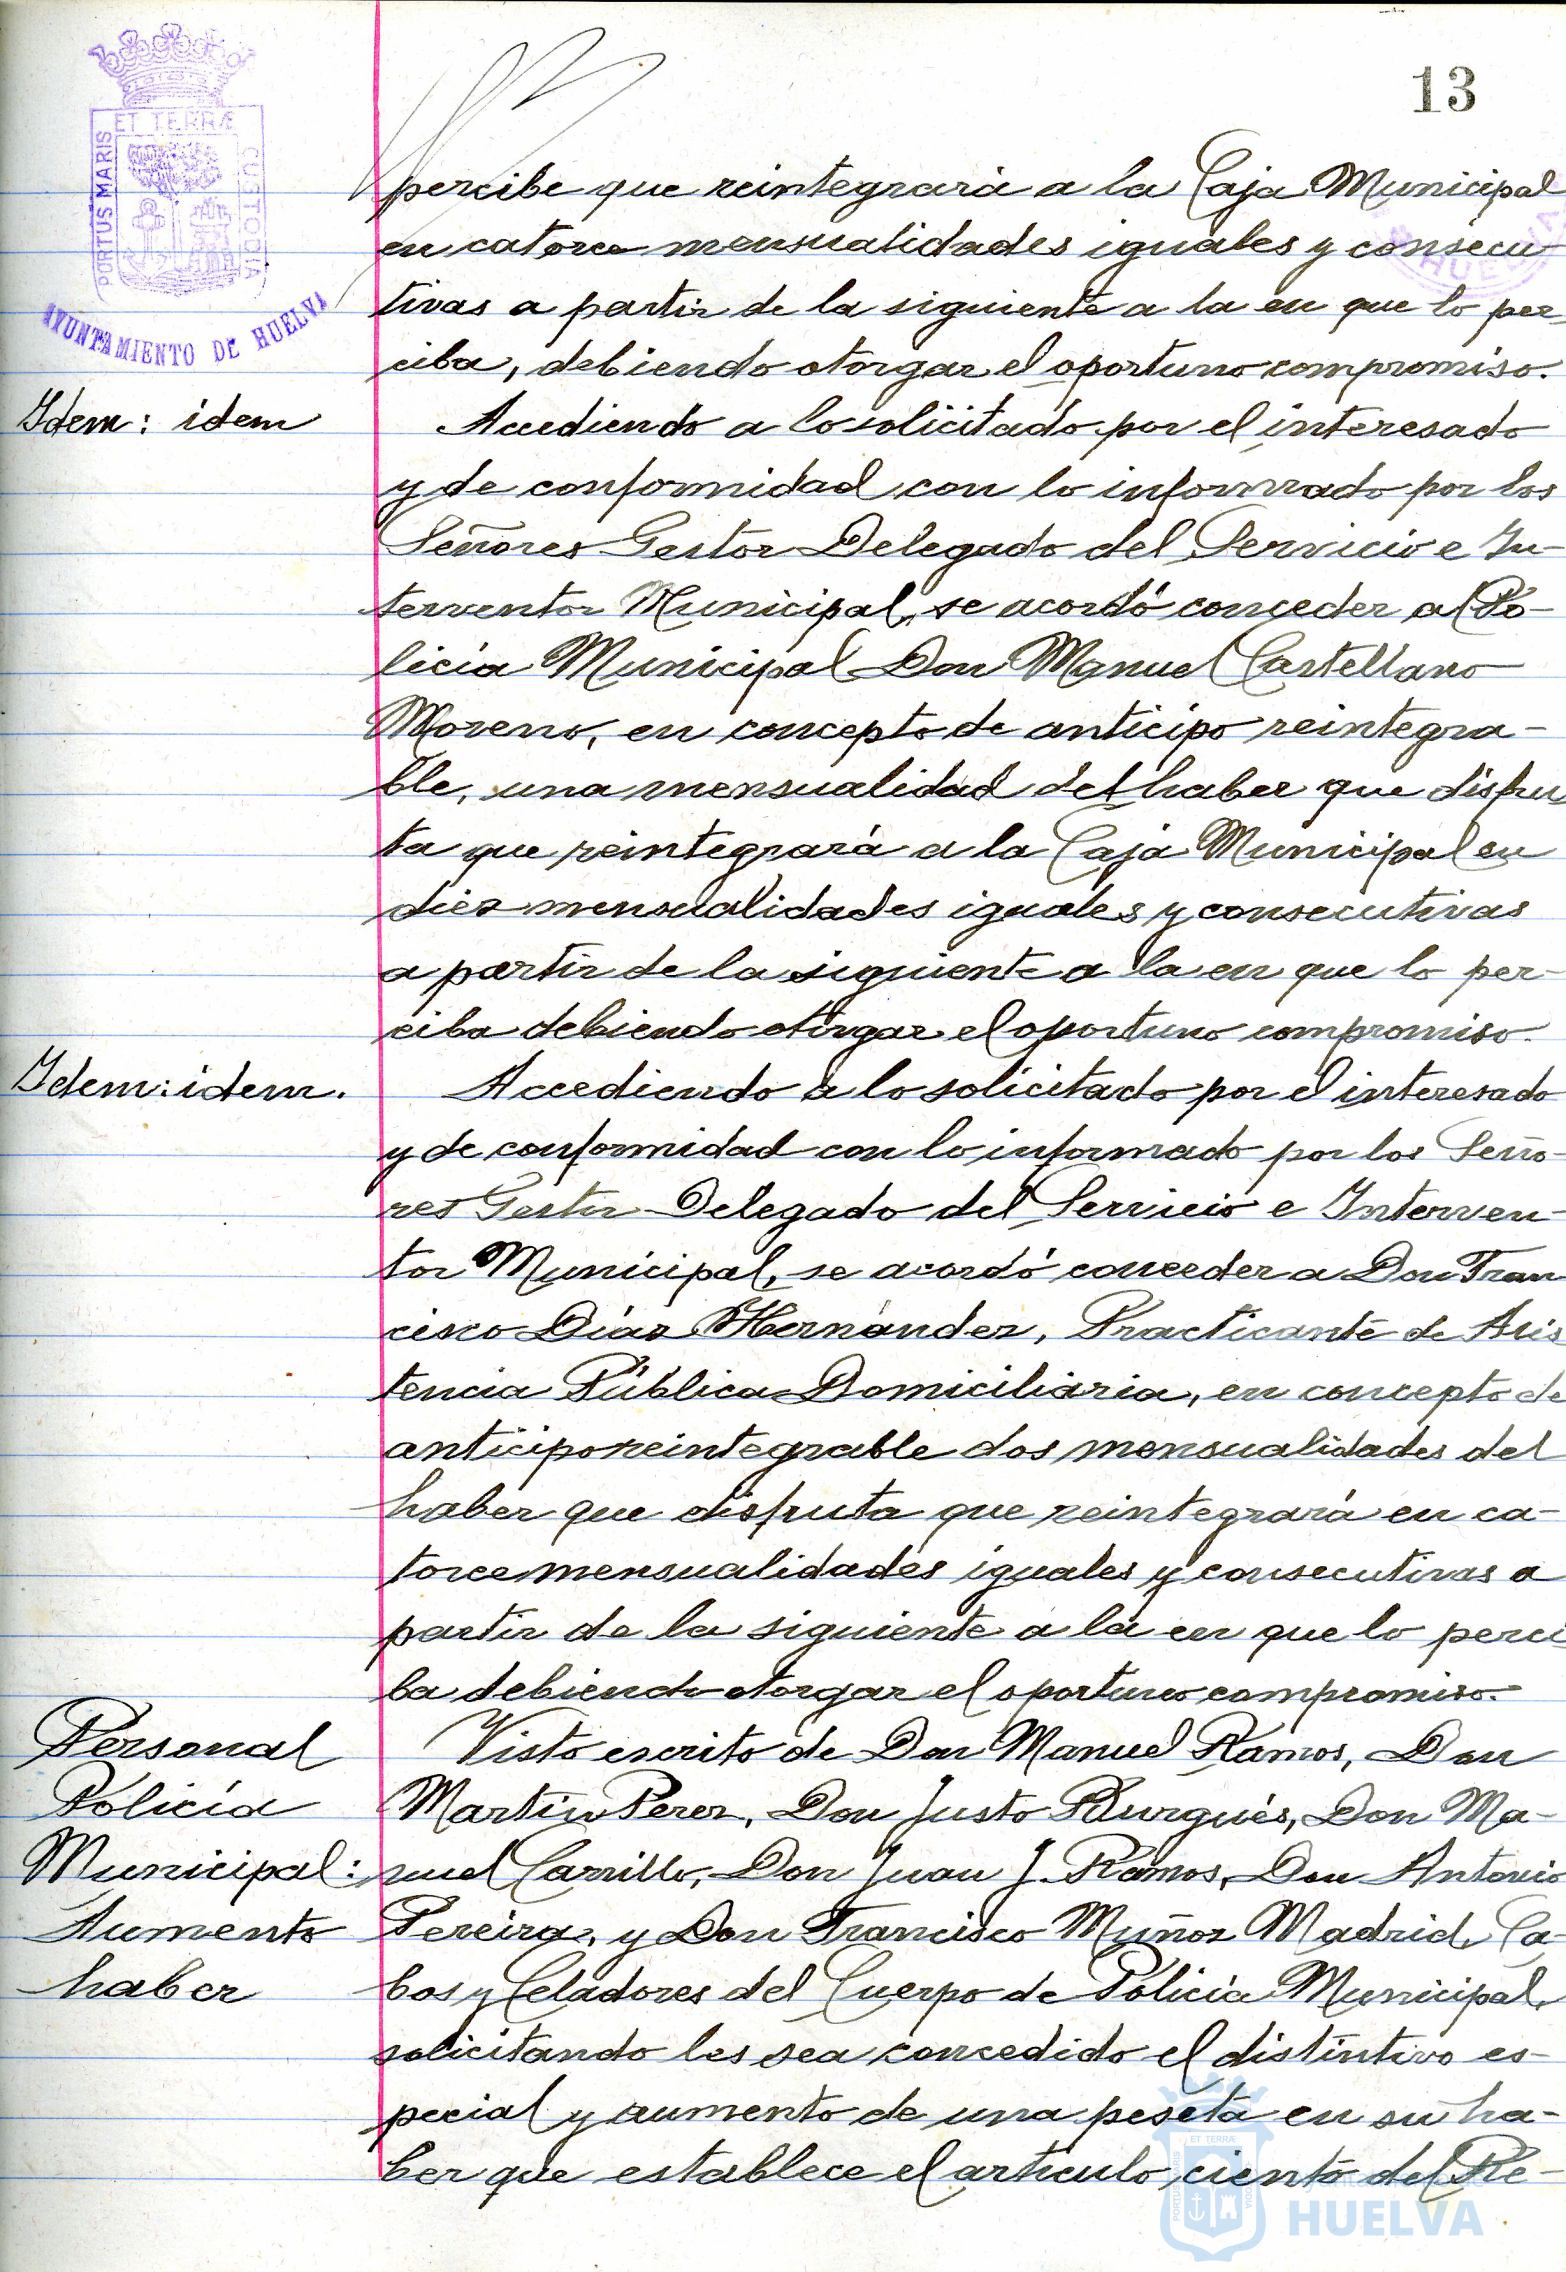 13
ET TERRÆ
PORTUS MARIS
CUSTODIA
AYUNTAMIENTO DE HUELVA
HUELVA
percibe que reintegrará a la Caja Municipal
en catorce mensualidades iguales y consecu-
tivas a partir de la siguiente a la en que lo per-
ciba, debiendo otorgar el oportuno compromiso.
Idem: idem
Accediendo a lo solicitado por el interesado
y de conformidad con lo informado por los
Señores Gestor Delegado del Servicio e In-
terventor Municipal, se acordó conceder al Po-
licía Municipal Don Manuel Castellano
Moreno, en concepto de anticipo reintegra-
ble, una mensualidad del haber que disfru
ta que reintegrará a la Caja Municipal en
diez mensualidades iguales y consecutivas
a partir de la siguiente a la en que lo per-
ciba debiendo otorgar el oportuno compromiso.
Idem: idem.
Accediendo a lo solicitado por el interesado
y de conformidad con lo informado por los Seño-
res Gestor Delegado del Servicio e Interven-
tor Municipal, se acordó conceder a Don Fran
cisco Díaz Hernández, Practicante de Asis
tencia Pública Domiciliaria, en concepto de
anticipo reintegrable dos mensualidades del
haber que disfruta que reintegrará en ca-
torce mensualidades iguales y consecutivas a
partir de la siguiente a la en que lo perci
ba debiendo otorgar el oportuno compromiso.
Personal
Policía
Municipal:
Aumento
haber
Visto escrito de Don Manuel Ramos, Don
Martín Perez, Don Justo Burgués, Don Ma-
nuel Carrillo, Don Juan J. Ramos, Don Antonio
Pereira, y Don Francisco Muñoz Madrid, Ca-
bos y Celadores del Cuerpo de Policía Municipal,
solicitando les sea concedido el distintivo es-
pecial y aumento de una peseta en su ha-
ber que establece el artículo ciento del Re-
ET TERRÆ
PORTUS MARIS
HUELVA